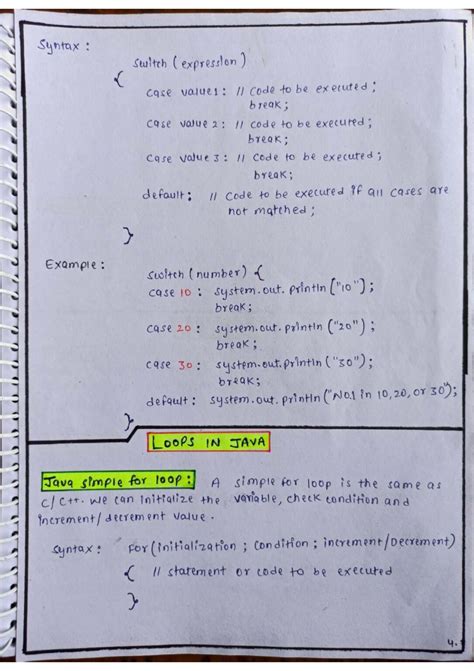 Syntax :
switch ( expression )
{
case value1 : // code to be executed ;
break ;
case value 2 : // code to be executed ;
break ;
case value 3 : // code to be executed ;
break ;
default : // code to be executed if all cases are
not matched ;
}
Example :
switch ( number ) {
case 10 : system.out.println ("10") ;
break ;
case 20 : system.out.println ("20") ;
break ;
case 30 : system.out.println ("30") ;
break ;
default : system.out.println ("No.1 in 10, 20, or 30") ;
}
LOOPS IN JAVA
Java simple for loop : A simple for loop is the same as
C / C++. We can initialize the variable, check condition and
increment / decrement value .
Syntax : for (initialization ; condition ; increment/Decrement)
{ // statement or code to be executed
}